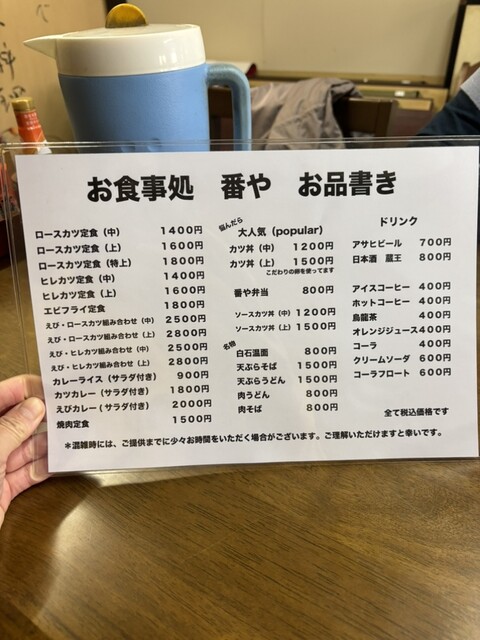 お食事処 番や お品書き
ロースカツ定食（中） 1400円
ロースカツ定食（上） 1600円
ロースカツ定食（特上） 1800円
ヒレカツ定食（中） 1400円
ヒレカツ定食（上） 1600円
エビフライ定食 1800円
えび・ロースカツ組み合わせ（中） 2500円
えび・ロースカツ組み合わせ（上） 2800円
えび・ヒレカツ組み合わせ（中） 2500円
えび・ヒレカツ組み合わせ（上） 2800円
カレーライス（サラダ付き） 900円
カツカレー（サラダ付き） 1800円
えびカレー（サラダ付き） 2000円
焼肉定食 1500円
悩んだら
大人気（popular）
カツ丼（中） 1200円
カツ丼（上） 1500円
こだわりの卵を使ってます
番や弁当 800円
ソースカツ丼（中） 1200円
ソースカツ丼（上） 1500円
名物
白石温面 800円
天ぷらそば 1500円
天ぷらうどん 1500円
肉うどん 800円
肉そば 800円
ドリンク
アサヒビール 700円
日本酒 蔵王 800円
アイスコーヒー 400円
ホットコーヒー 400円
烏龍茶 400円
オレンジジュース 400円
コーラ 400円
クリームソーダ 600円
コーラフロート 600円
全て税込価格です
＊混雑時には、ご提供までに少々お時間をいただく場合がございます。ご理解いただけますと幸いです。